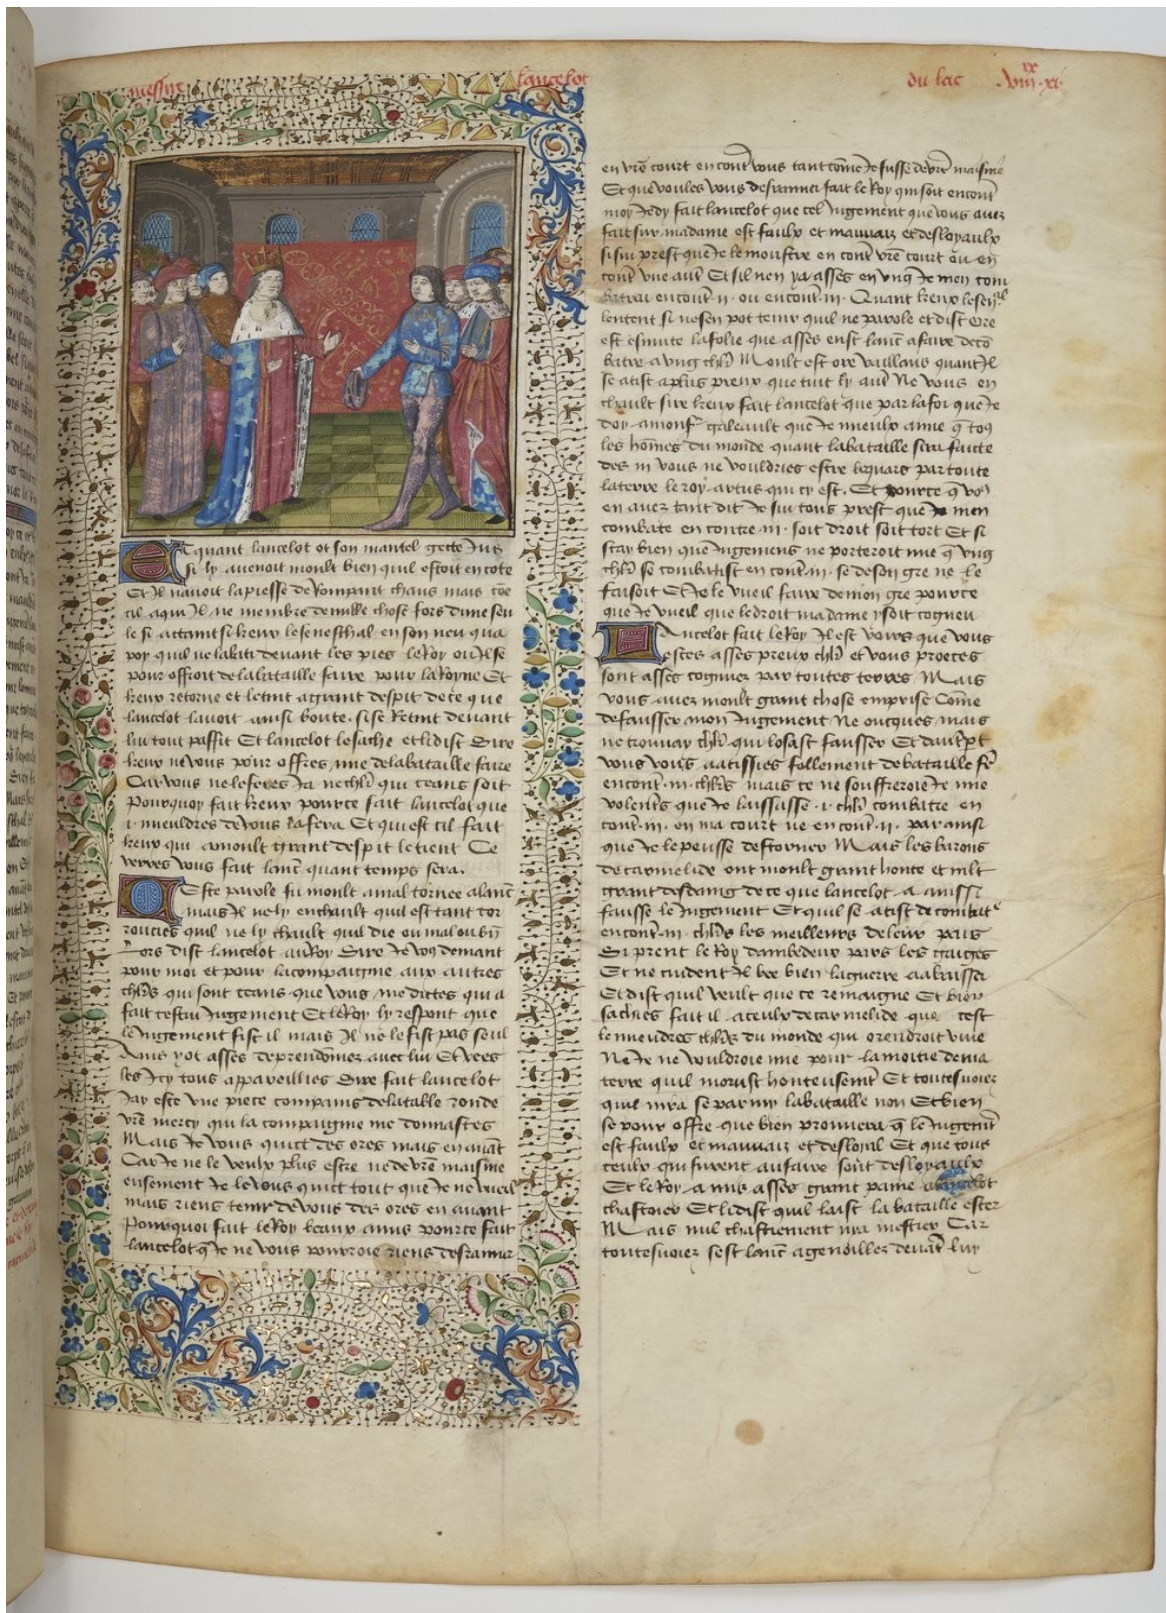 messire lancelot
du lac
Et quant lancelot ot son mantel gette jus
si ly avenoit moult bien quil estoit en cote
Et il navoit la piesse de rompant chaus mais
cil aqui il ne membre de nulle chose fors dune seu
le si actaint si keux le seneschal en son
poy quil ne labati devant les pies le Roy ou il se
pour offroit de la bataille faire pour la Royne Et
keux retorne et le tint a grant despit de ce que
lancelot lavoit ainsi boute. si se Remit devant
lui tout passit Et lancelot le sache et li dist Sire
keux ne vous pour offres mie de la bataille faire
Car vous ne le feres Ja ne chlr qui ceans soit
Pourquoy fait keux pource fait lancelot que
.i. meuldres de vous la fera Et qui est cil fait
keux qui a moult grant despit le tient Ce
verres vous fait lanc quant temps sera.
Ceste parole fu moult a mal tornee a lanc
mais il ne ly enchault quil est tant cor
rouciés quil ne ly chault quil die ou mal ou bn
Lors dist lancelot au Roy Sire Je vos demant
pour moi et pour la compaignie aux autres
chlrs qui sont ceans que vous me dittes qui a
fait cestui Jugement Et le Roy ly respont que
le Jugement fist il mais Il ne le fist pas seul
Ains y ot asses de preudomez avec lui Et vees
les Icy tous appareillies Sire fait lancelot
Jay este une piece compains de la table ronde
vre mercy qui la compaignie me donnastes
Mais Je vous quict des ores mais en avant
Car Je ne le veulx plus estre ne de vre maisnie
ensement Je le vous quict tout que Je ne vueil
mais riens tenir de vous des ores en avant
Pourquoi fait le Roy beaux amis pource fait
lancelot q Je ne vous pourroie riens desrainier
en vre court encont vous tant come Je fusse de vre maisnie
Et que voules vous desrainier fait le Roy qui soit encont
moy Je dy fait lancelot que cel Jugement que vous avez
fait sur madame est faulx et mauvaiz et desloyaulx
si sui prest que Je le moustre en cont vre court ou en
cont une aut Et sil nen ya asses en ung Je men com
batrai encont .ii. ou encont .iii. Quant keux le sen
lentent si ne sen pot tenir quil ne parole et dist Ore
est la folie que asses eust lanc a faire de co
batre a ung chlr Moult est ore vaillans quant il
se atist a plus preux que tuit ly aut Ne vous en
chault sire keux fait lancelot que par la foi que Je
doy a mons galeault que Je mieulx aime q tos
les homes du monde quant la bataille sera faicte
des .iii. vous ne vouldries estre le quars par toute
la terre le roy artus qui cy est. Et pource q vos
en avez tant dit Je sui tous prest que Je men
combate en contre .iii. soit droit soit tort Et si
scay bien que Jugemens ne porteroit mie q ung
chlr se combatist en cont .iii. se de son gre ne le
faisoit Et Je le vueil faire de mon gre pource
que Je vueil que le droit madame y soit cogneu
Lancelot fait le Roy Il est voirs que vous
estes asses preux chlr et vous proeces
sont asses cogneues par toutes terres Mais
vous avez moult grant chose emprise Come
de fausser mon Jugement Ne oncques mais
ne trouvay chlr qui losast fausser Et daultpt
vous vous aatissies follement de bataille fe
encont .iii. chlrs mais ce ne souffreroie Je mie
volentis que Je laississe .i. chlr combatre en
cont .iii. en ma court ne en cont .ii. par ainsi
que Je le peusse destorner Mais les barons
de carmelide ont moult grant honte et mlt
grant desdaing de ce que lancelot a ainssi
fausse le Jugement Et quil se atist de combat
encont .iii. chlrs les meilleurs de leur pais
Si prent le Roy dambedeux pars les gaiges
Et ne cuident Il bee bien la guerre a abaissier
Et dist quil veult que ce remaigne Et bien
sachies fait il a ceulx de carmelide que cest
le meudres chlrs du monde qui orendroit vive
Ne Je ne vouldroie mie pour la moitie de ma
terre quil morust honteusemt Et toutesvoiez
quil nira se par my la bataille non Et bien
se pour offre que bien prouvera q le Jugemt
est faulx et mauvaiz et desloial Et que tous
ceulx qui furent au faire sont desloyaulx
Et le Roy a mis asses grant paine a lancelot
chastoier Et li dist quil laist la bataille ester
Mais nul chastiement nira mestier Car
toutesvoiez sest lanc agenoillez devat luy